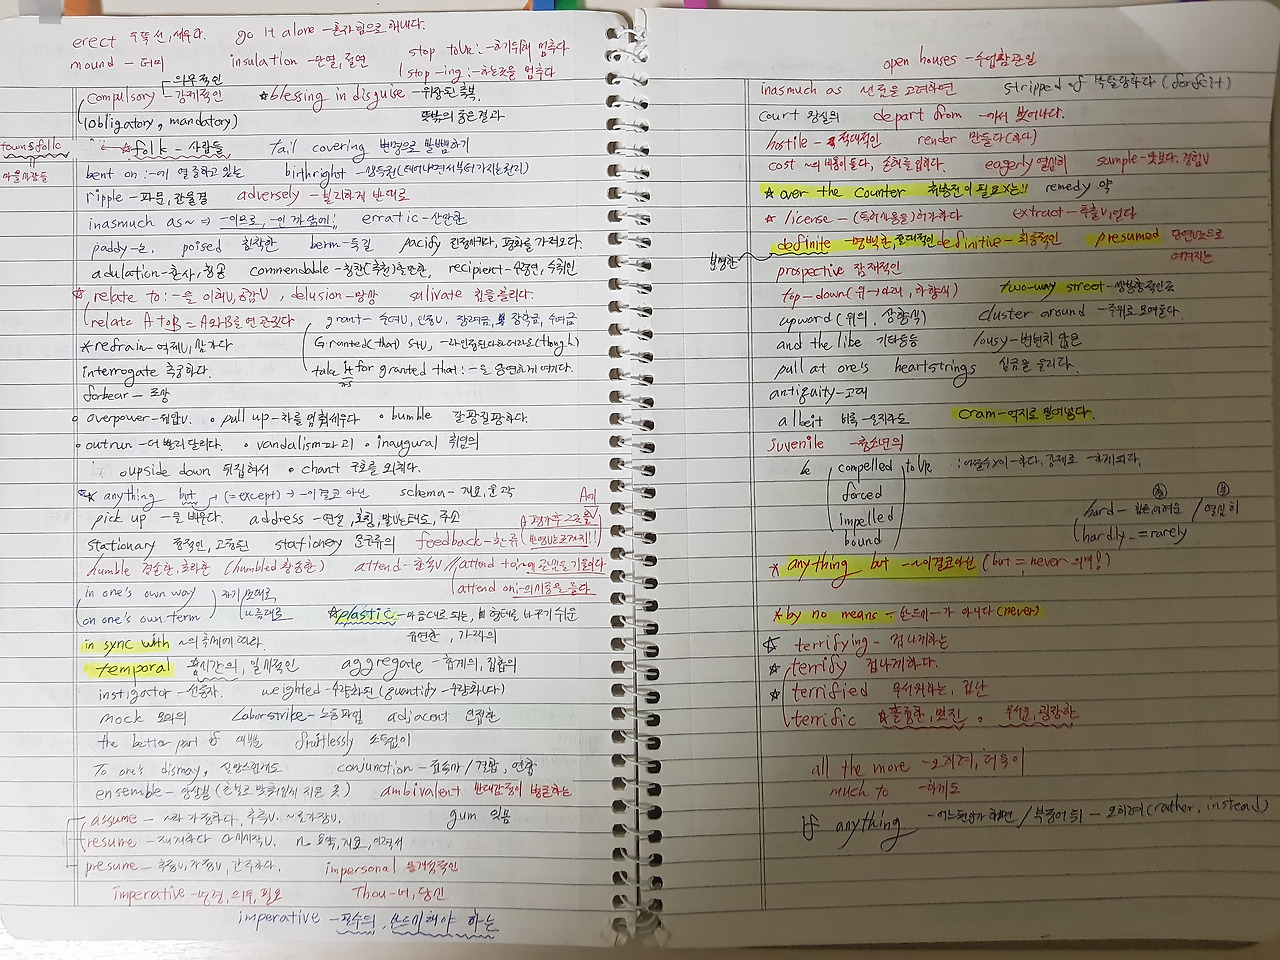 erect 우뚝 선, 세우다. go it alone - 혼자 힘으로 해내다.
mound - 더미 insulation - 단열, 절연 stop toV: ~하기위해 멈추다
stop -ing: ~하는것을 멈추다
의무적인
compulsory - 강제적인 ★blessing in disguise - 위장된 축복,
(obligatory, mandatory) 뜻밖의 좋은결과
townsfolk
마을사람들
★folk - 사람들 tail covering 변명으로
bent on :~에 열중하고 있는 birthright - 생득권(태어나면서부터 가지는 권리)
ripple - 파문, 잔물결 adversely - 불리하게 반대로
inasmuch as~ ⇒ ~이므로, ~인 까닭에! erratic - 산만한
paddy - 논, poised 침착한 berm - 둑길 pacify 진정시키다, 평화를 가져오다.
adulation - 찬사, 칭송 commendable - 칭찬(추천)할만한, recipient - 수령인, 수취인
☆ relate to: ~을 이해V, 공감V, delusion - 망상 salivate 침을 흘리다.
relate A to B = A와 B를 연관짓다 grant - 수여V, 인정V, 장려금, 장학금, 수여금
★refrain - 억제V, 삼가다 Granted (that) S+V, ~라 인정된다 하더라도(though)
interrogate 추궁하다. take it for granted that: ~을 당연하게 여기다.
forbear - 조상
overpower - 제압V. • pull up - 차를 멈춰세우다 • bumble 갈팡질팡하다.
• outrun - 더 빨리 달리다. • vandalism 파괴 • inaugural 취임의
upside down 뒤집혀서 • chant 구호를 외치다.
★ anything but (=except) → ~이 결코 아닌 schema - 개요, 윤곽
pick up - 을 배우다. address - 연설, 호칭, 말V는태도, 주소
stationary 정적인, 고정된 stationery 문구류의 feedback - 환류
humble 겸손한, 초라한 (humbled 황송한) attend - 참석V attend to: ~에 관심을 기울이다
attend on: ~의 시중을 들다
in one's own way 자기 멋대로
on one's own term 나름대로 ★plastic - 마음대로 되는, 형태를 바꾸기 쉬운
유연한, 가짜의
in sync with ~의 추세에 따라.
temporal 시간의, 일시적인 aggregate - 합계의, 집합의
instigator - 선동자. weighted - 수량화된 (quantify - 수량화V다)
mock 모의의 Labor strike - 노동파업 adjacent 인접한
the better part of 대부분 fruitlessly 소득없이
To one's dismay, 실망스럽게도 conjunction - 접속사 / 결합, 연합
ensemble - 앙상블 ambivalent 반대감정이 병존하는
assume - ~라 가정하다, 추측V. gum 잇몸
resume - 재개하다 다시시작V. n. 요약, 개요, 이력서
presume - 추정V, 가정V, 간주하다. impersonal 몰개성적인
imperative - 명령, 의무, 필요 Thou - 너, 당신
imperative - 필수의, 반드시해야 하는
open houses - 수업참관일
inasmuch as 선을 고려하면 stripped of 박탈당하다 (forfeit)
court 왕실의 depart from ~에서 벗어나다.
hostile - 적대적인 render 만들다(하다)
cost ~의 비용이 들다, 손해를 입히다. eagerly 열심히 sample - 맛보다, 경험V
★ over the counter 처방전이 필요X는!! remedy 약
★ license - (특허사용을)허가하다 extract - 추출V, 얻다
definite - 명백한, 분명한 definitive - 최종적인 presumed 당연V것으로
여겨지는
prospective 잠재적인
top-down (위→아래, 하향식) two-way street - 쌍방향적인것
upward (위의, 상향식) cluster around - 주위로 모여들다.
and the like 기타등등 lousy - 변변치 않은
pull at one's heartstrings 심금을 울리다.
antiquity - 고대
albeit 비록 ~일지라도 cram - 억지로 밀어넣다.
juvenile - 청소년의
be compelled to V : 어쩔수X이 ~하다. 강제로 ~하게되다.
forced
impelled
bound
hard - 힘든, 어려운 / 열심히
hardly - = rarely
★ anything but - ~이 결코아닌 (but = never 의미!)
★by no means - 반드시 ~가 아니다 (never)
☆ terrifying - 겁나게하는
☆ terrify 겁나게하다.
☆ terrified 무서워하는, 겁난
terrific ★훌륭한, 멋진, 무서운, 굉장한
all the more - 오히려, 더욱이
much to - ~하게도
if anything - 어느편인가 하면 / 부정어 뒤 - 오히려 (rather, instead)